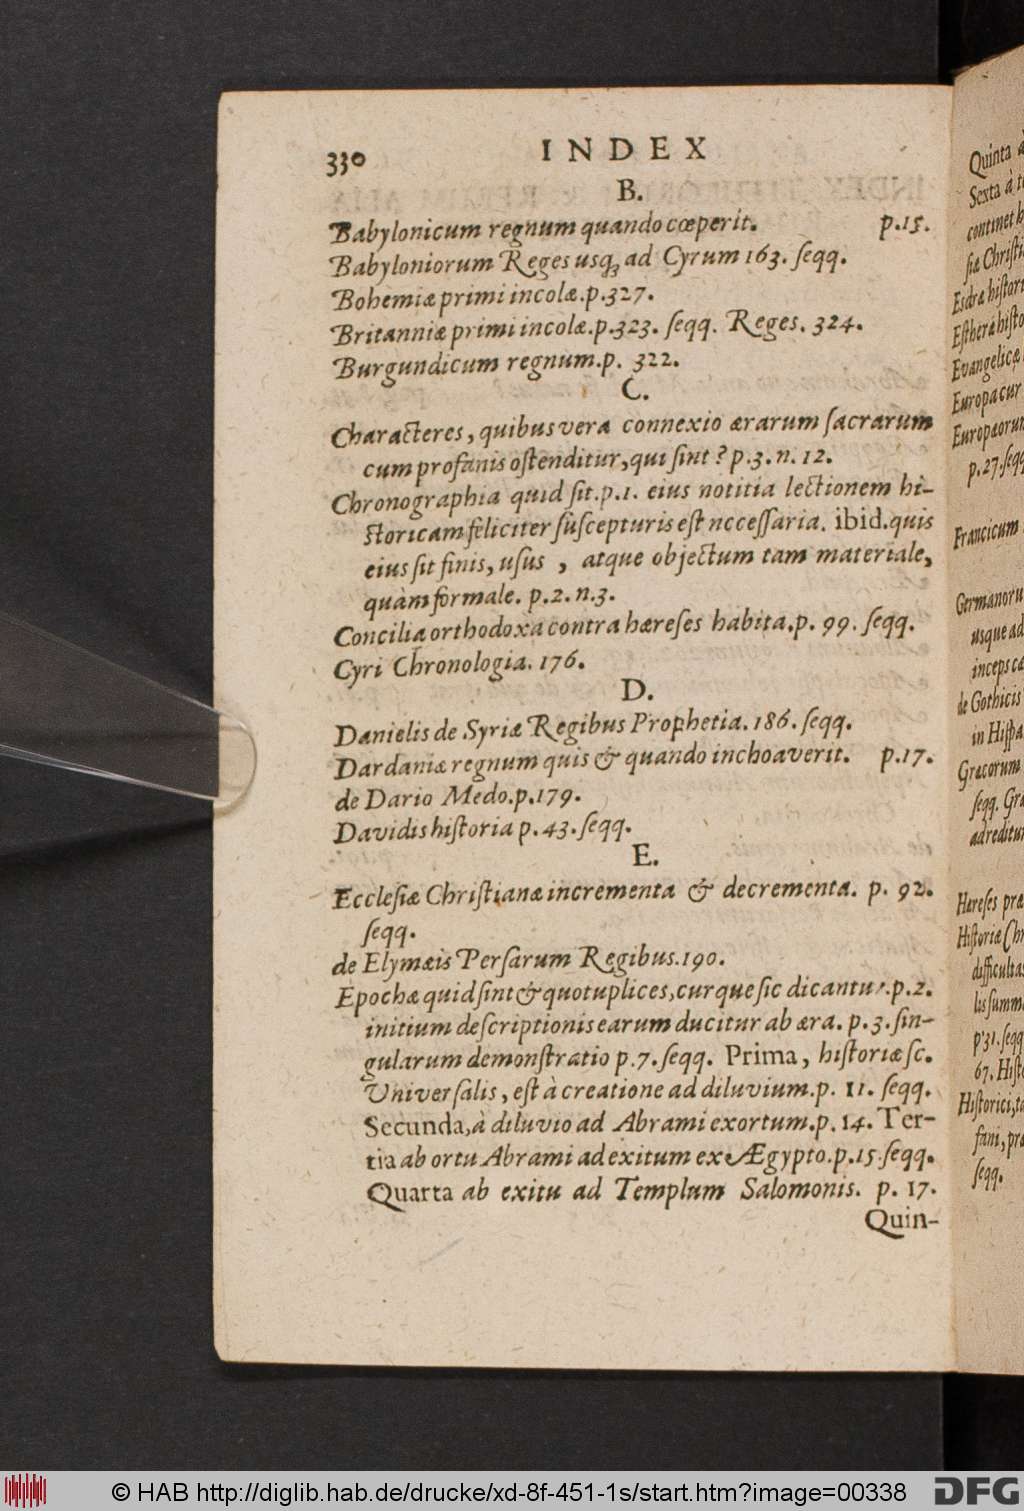 330 INDEX
B.
Babylonicum regnum quando cœperit. p.15.
Babyloniorum Reges usq; ad Cyrum 163. ſeqq.
Bohemiæ primi incolæ.p.327.
Britanniæ primi incolæ.p.323. ſeqq. Reges. 324.
Burgundicum regnum.p. 322.
C.
Characteres, quibus vera connexio ærarum ſacrarum
cum profanis oſtenditur, qui ſint? p.3.n.12.
Chronographia quid ſit.p.1. eius notitia lectionem hi-
ſtoricam feliciter ſuſcepturis eſt neceſſaria. ibid. quis
eius ſit finis, uſus, atque objectum tam materiale,
quàm formale. p.2.n.3.
Concilia orthodoxa contra hæreſes habita.p. 99. ſeqq.
Cyri Chronologia. 176.
D.
Danielis de Syriæ Regibus Prophetia. 186. ſeqq.
Dardaniæ regnum quis & quando inchoaverit. p.17.
de Dario Medo.p.179.
Davidis hiſtoria p.43.ſeqq.
E.
Eccleſiæ Chriſtianæ incrementa & decrementa. p. 92.
ſeqq.
de Elymæis Perſarum Regibus.190.
Epochæ quid ſint & quotuplices, cur que ſic dicantur.p.2.
initium deſcriptionis earum ducitur ab æra. p.3. ſin-
gularum demonſtratio p.7. ſeqq. Prima, hiſtoriæ ſc.
Univerſalis, eſt à creatione ad diluvium.p. 11. ſeqq.
Secunda, à diluvio ad Abrami exortum.p. 14. Ter-
tia ab ortu Abrami ad exitum ex Ægypto.p.15.ſeqq.
Quarta ab exitu ad Templum Salomonis. p. 17.
Quin-
Quinta
Sexta à
continet
ſiæ Chriſti
Eſdræ hiſtori
Eſtheræ hiſto
Evangelicæ
Europa cur
Europæorum
p.27.ſeqq
Francicum
Germanoru
usque ad
inceps
de Gothicis
in Hiſpa
Græcorum
ſeqq. Gr
ad reditum
Hæreſes præ
Hiſtoriæ Chr
difficultas
lis ſumm
p.31.ſeqq
67. Hiſto
Hiſtorici,
fani, pr
ſeqq.
© HAB http://diglib.hab.de/drucke/xd-8f-451-1s/start.htm?image=00338
DFG